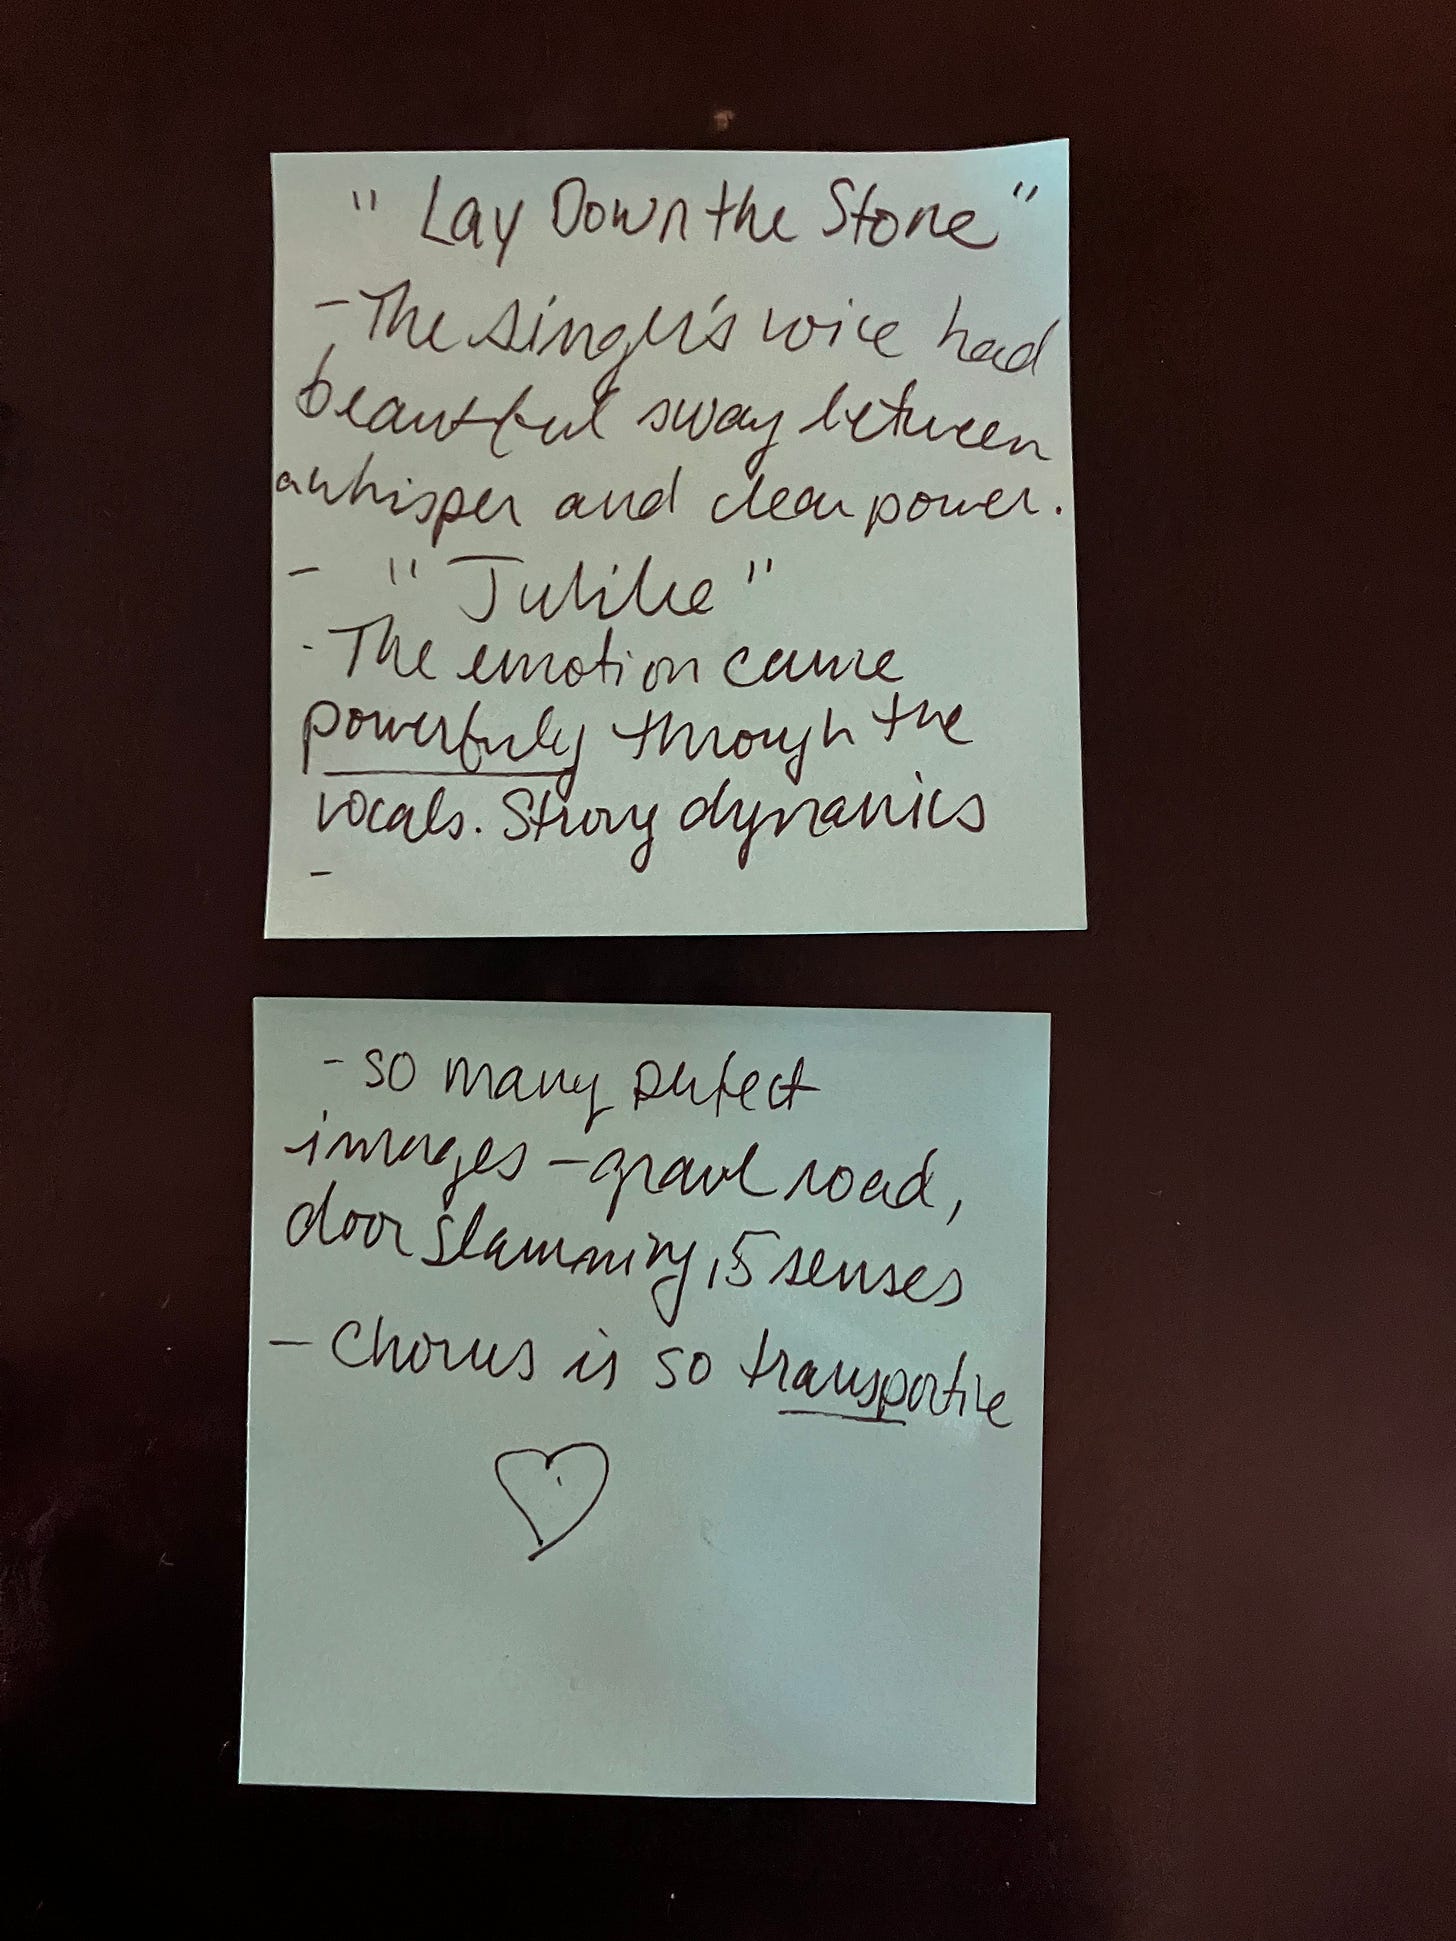 "Lay Down the Stone"
- The singer's voice had
beautiful sway between
a whisper and clear power.
- "Julike"
- The emotion came
powerfully through the
vocals. Strong dynamics
-
- so many perfect
images - gravel road,
door slamming, 5 senses
- Chorus is so transportive